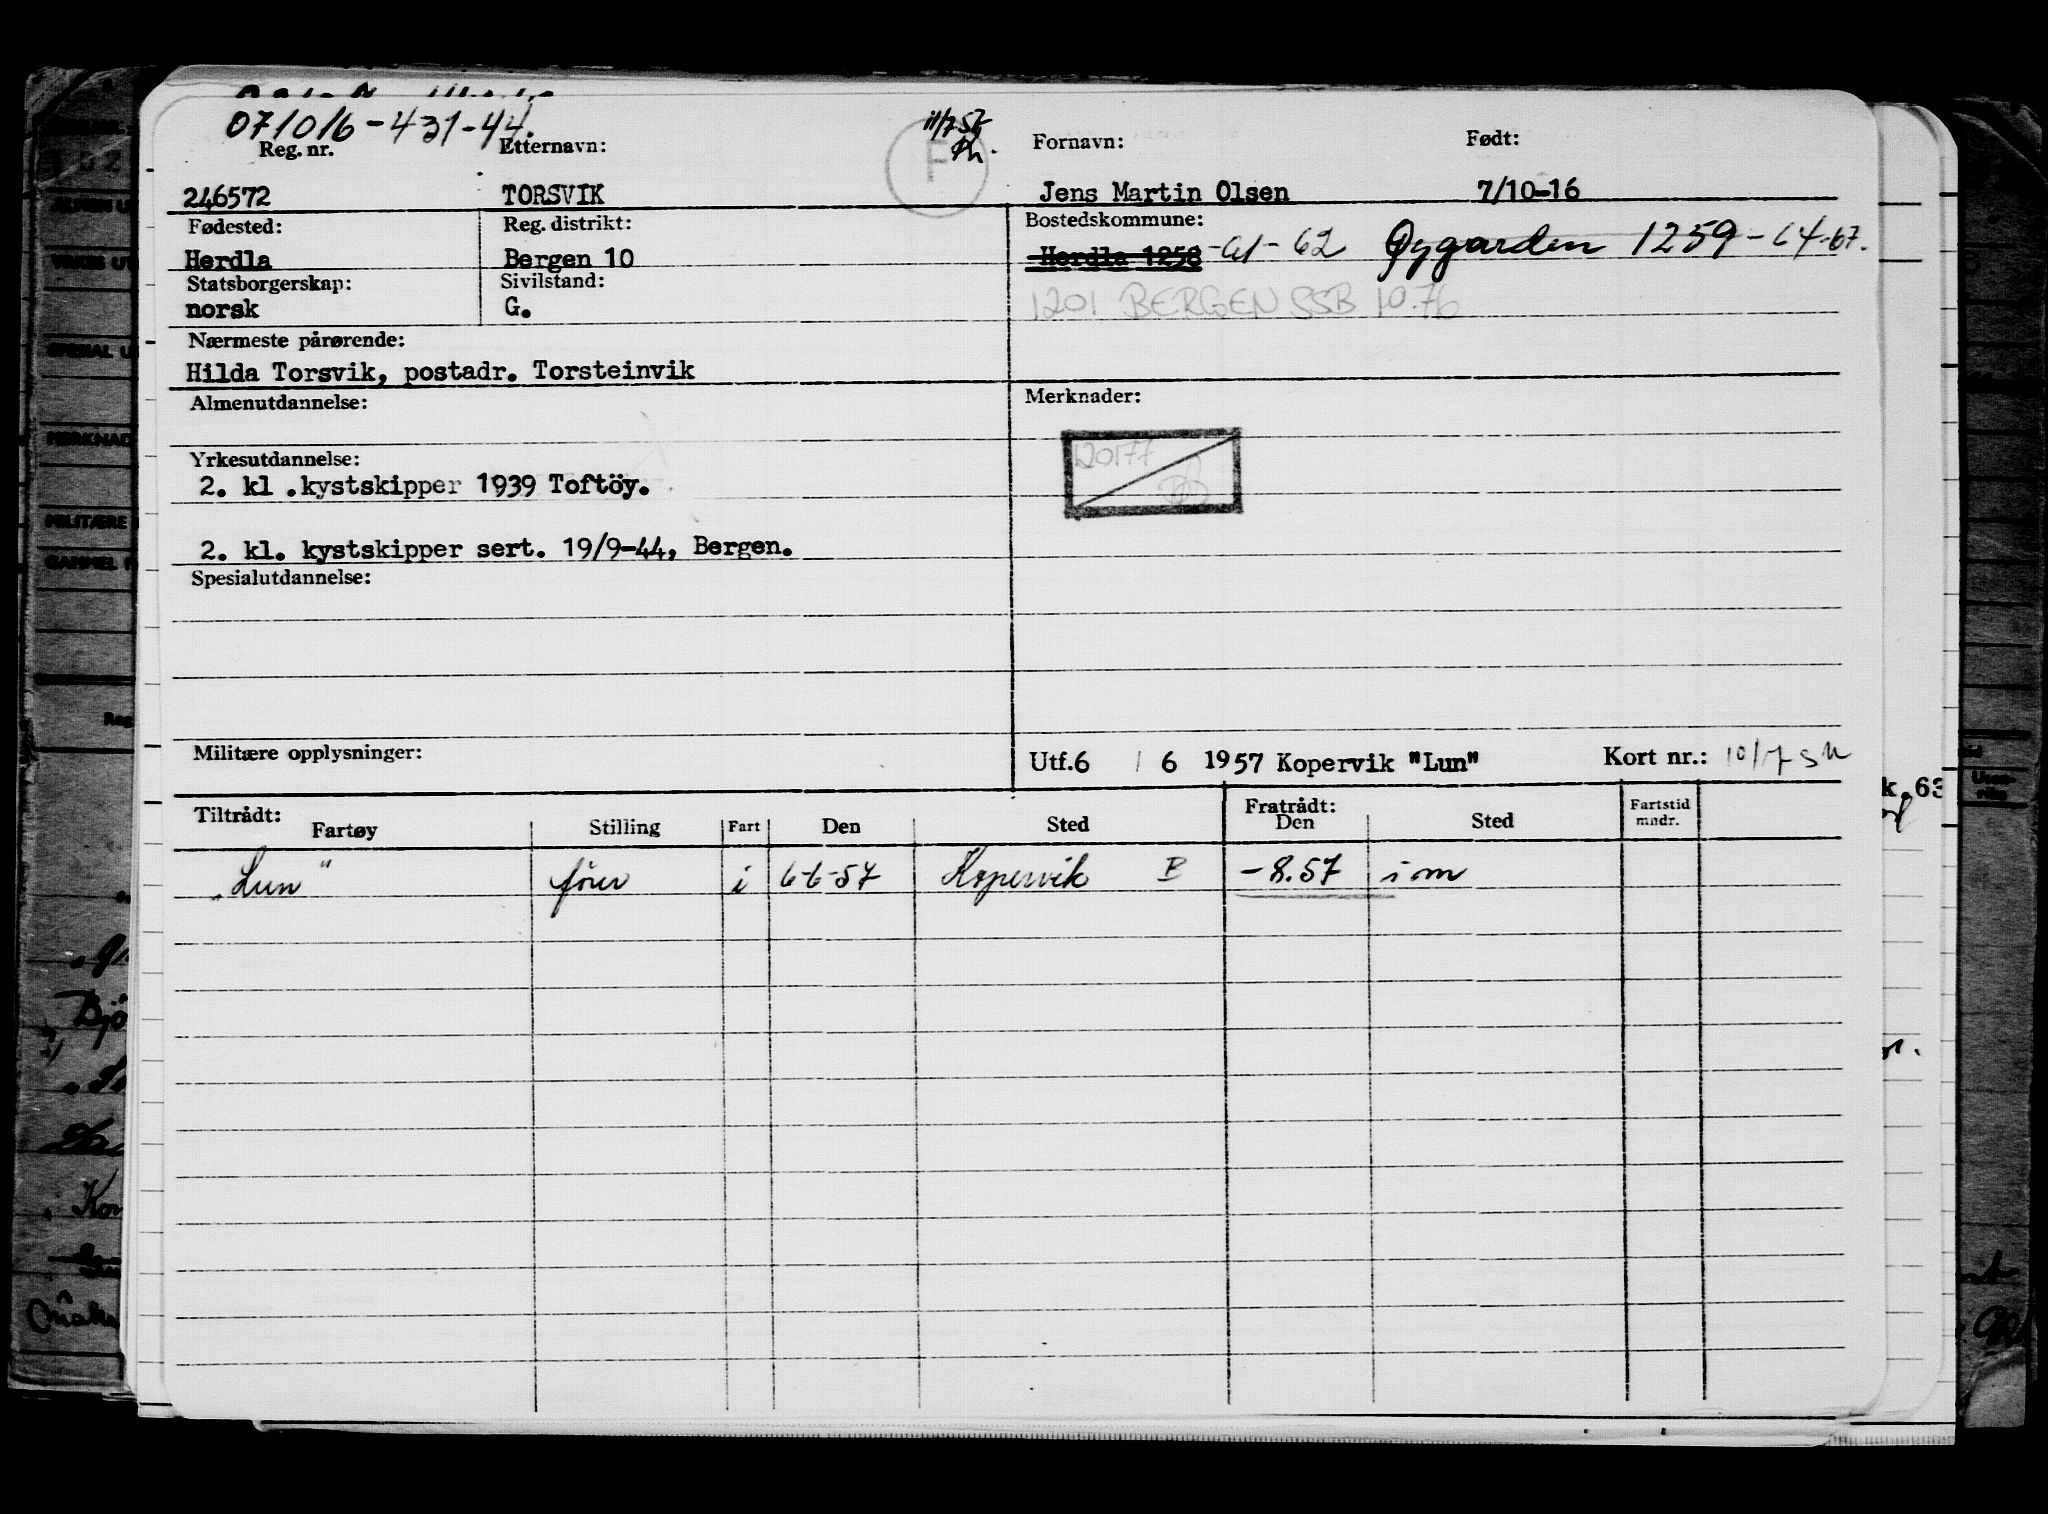 071016-431-44.
11/7 57
F
Reg. nr. Etternavn: Fornavn: Født:
246572 TORSVIK Jens Martin Olsen 7/10-16
Fødested: Reg. distrikt: Bostedskommune:
Herdla Bergen 10 Herdla 1258 -61-62 Øygarden 1259-64-67.
Statsborgerskap: Sivilstand:
norsk G. 1201 BERGEN SSB 10.76
Nærmeste pårørende:
Hilda Torsvik, postadr. Torsteinvik
Almenutdannelse: Merknader:
120177
Yrkesutdannelse:
2. kl .kystskipper 1939 Toftöy.
2. kl. kystskipper sert. 19/9-44, Bergen.
Spesialutdannelse:
Militære opplysninger: Utf.6 / 6 1957 Kopervik "Lun" Kort nr.: 10/7
Tiltrådt: Fratrådt:
Fartøy Stilling Fart Den Sted Den Sted Fartstid mndr.
"Lun" förer i 6-6-57 Kopervik B -8.57 i om